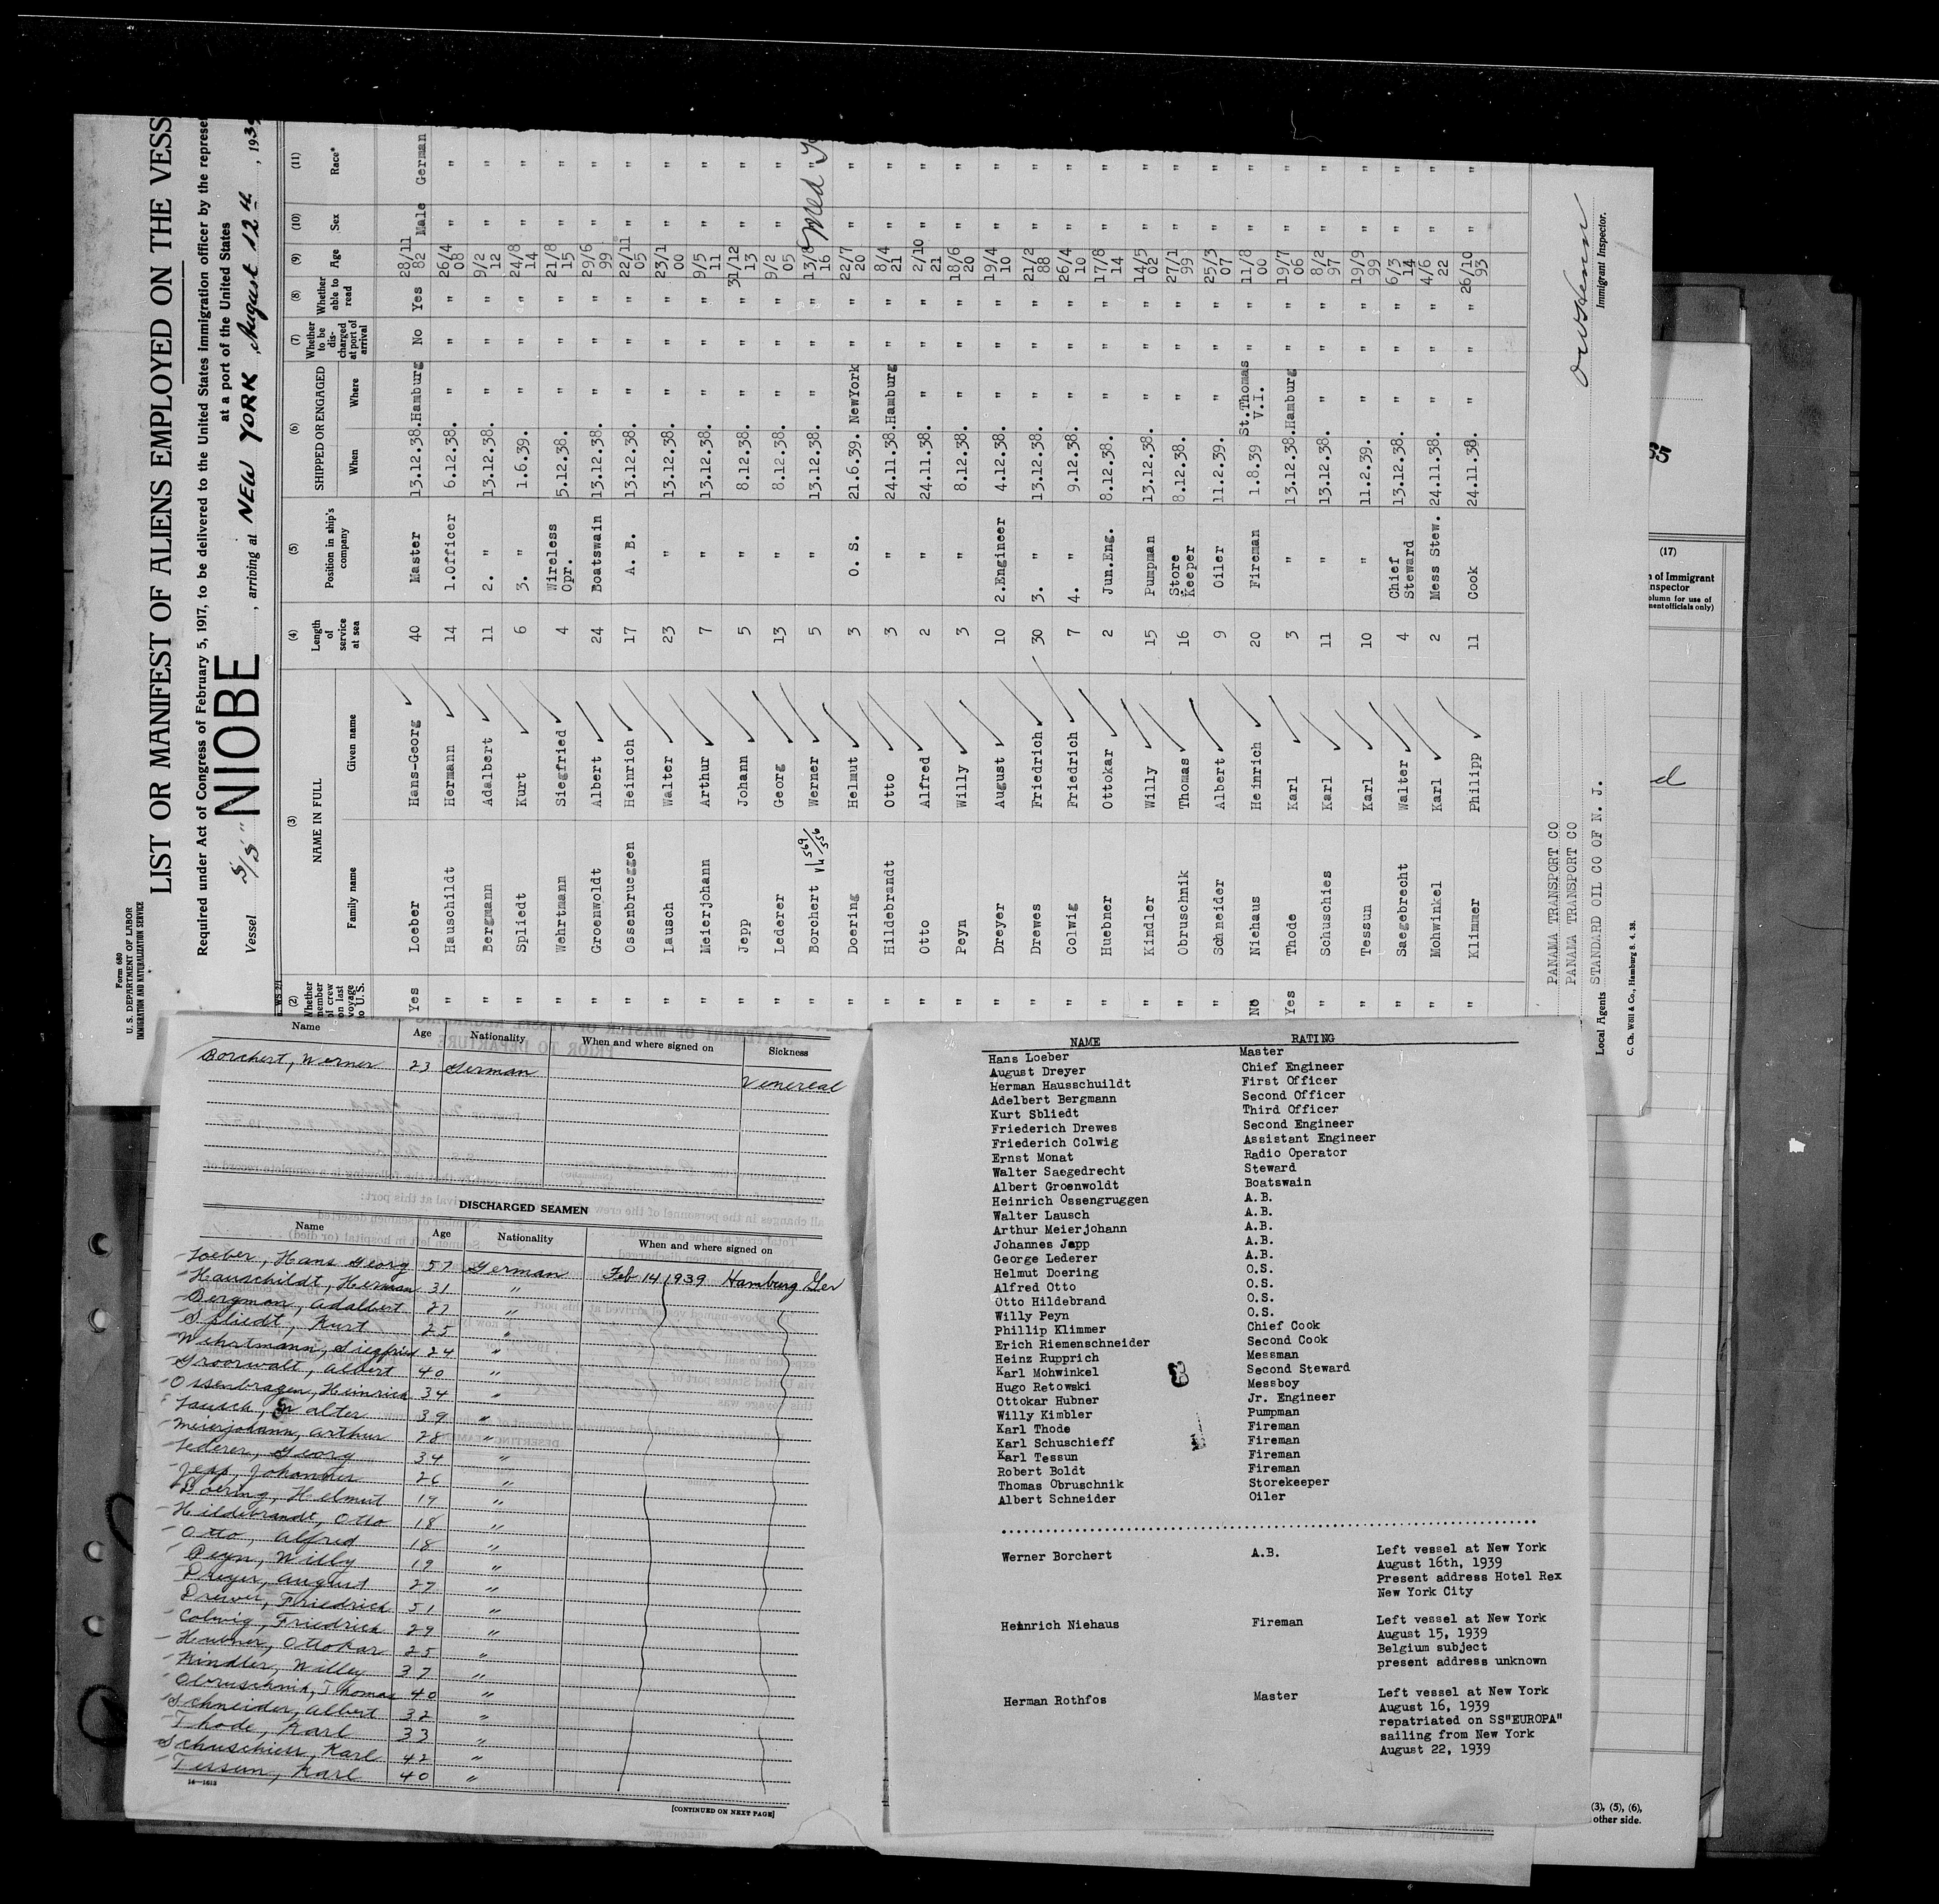 Form 680
U. S. DEPARTMENT OF LABOR
IMMIGRATION AND NATURALIZATION SERVICE
LIST OR MANIFEST OF ALIENS EMPLOYED ON THE VESS
Required under Act of Congress of February 5, 1917, to be delivered to the United States Immigration officer by the represe
at a port of the United States
Vessel S/S "NIOBE , arriving at NEW YORK , August 12th , 1939
(2) (3) (4) (5) (6) (7) (8) (9) (10) (11)
Whether member of crew on last voyage to U.S. NAME IN FULL Length of service at sea Position in ship's company SHIPPED OR ENGAGED Whether to be discharged at port of arrival Whether able to read Age Sex Race*
Family name Given name When Where
Yes Loeber Hans-Georg 40 Master 13.12.38. Hamburg No Yes 28/11 82 Male German
" Hauschildt Hermann 14 1.Officer 6.12.38. " " " 26/4 08 " "
" Bergmann Adalbert 11 2. " 13.12.38. " " " 9/2 12 " "
" Spliedt Kurt 6 3. " 1.6.39. " " " 24/8 14 " "
" Wehrtmann Siegfried 4 Wireless Opr. 5.12.38. " " " 21/8 15 " "
" Groenwoldt Albert 24 Boatswain 13.12.38. " " " 29/6 99 " "
" Ossenbrueggen Heinrich 17 A. B. 13.12.38. " " " 22/11 05 " "
" Lausch Walter 23 " 13.12.38. " " " 23/1 00 " "
" Meierjohann Arthur 7 " 13.12.38. " " " 9/5 11 " "
" Jepp Johann 5 " 8.12.38. " " " 31/12 13 " "
" Lederer Georg 13 " 8.12.38. " " " 9/2 05 " "
" Borchert Werner 5 " 13.12.38. " " " 13/8 16 Med "
" Doering Helmut 3 O. S. 21.6.39. NewYork " " 22/7 20 " "
" Hildebrandt Otto 3 " 24.11.38. Hamburg " " 8/4 21 " "
" Otto Alfred 2 " 24.11.38. " " " 2/10 21 " "
" Peyn Willy 3 " 8.12.38. " " " 18/6 20 " "
" Dreyer August 10 2.Engineer 4.12.38. " " " 19/4 10 " "
" Drewes Friedrich 30 3. " 13.12.38. " " " 21/2 88 " "
" Colwig Friedrich 7 4. " 9.12.38. " " " 26/4 10 " "
" Huebner Ottokar 2 Jun.Eng. 8.12.38. " " " 17/8 14 " "
" Kindler Willy 15 Pumpman 13.12.38. " " " 14/5 02 " "
" Obruschnik Thomas 16 Store Keeper 8.12.38. " " " 27/1 99 " "
" Schneider Albert 9 Oiler 11.2.39. " " " 25/3 07 " "
No Niehaus Heinrich 20 Fireman 1.8.39 St.Thomas V.I. " " 11/8 00 " "
Yes Thode Karl 3 " 13.12.38. Hamburg " " 19/7 06 " "
" Schuschies Karl 11 " 13.12.38. " " " 8/2 97 " "
" Tessun Karl 10 " 11.2.39. " " " 19/9 99 " "
" Saegebrecht Walter 4 Chief Steward 13.12.38. " " " 6/3 14 " "
" Mohwinkel Karl 2 Mess Stew. 24.11.38. " " " 4/6 22 " "
" Klimmer Philipp 11 Cook 24.11.38. " " " 26/10 93 " "
PANAMA TRANSPORT CO
PANAMA TRANSPORT CO
Local Agents STANDARD OIL CO OF N. J.
Immigrant Inspector.
C. Ch. Wöll & Co., Hamburg 8. 4. 38.
(17)
of Immigrant
nspector
olumn for use of
ment officials only)
(3), (5), (6),
other side.
Name Age Nationality When and where signed on Sickness
Borchert, Werner 23 German Venereal
DISCHARGED SEAMEN
Name Age Nationality When and where signed on
Loeber, Hans Georg 57 German Feb 14 1939 Hamburg Ger
Hauschildt, Herman 31 "
Bergman, Adalbert 27 "
Spliedt, Kurt 25 "
Wehrtmann, Siegfried 24 "
Groorwalt, Albert 40 "
Ossenbragen, Heinrich 34 "
Lausch, Walter 39 "
Meierjohann, Arthur 28 "
Lederer, Georg 34 "
Jepp, Johannes 26 "
Doering, Helmut 19 "
Hildebrandt, Otto 18 "
Otto, Alfred 18 "
Peyn, Willy 19 "
Dreyer, August 29 "
Drewes, Friedrick 51 "
Colwig, Friedrick 29 "
Hubner, Ottokar 25 "
Kindler, Willey 37 "
Obruschnik, Thomas 40 "
Schneider, Albert 32 "
Thode, Karl 33 "
Schuschiess, Karl 42 "
Tessun, Karl 40 "
16—1613
[CONTINUED ON NEXT PAGE]
NAME RATING
Hans Loeber Master
August Dreyer Chief Engineer
Herman Hausschuildt First Officer
Adelbert Bergmann Second Officer
Kurt Sbliedt Third Officer
Friederich Drewes Second Engineer
Friederich Colwig Assistant Engineer
Ernst Monat Radio Operator
Walter Saegedrecht Steward
Albert Groenwoldt Boatswain
Heinrich Ossengruggen A.B.
Walter Lausch A.B.
Arthur Meierjohann A.B.
Johannes Japp A.B.
George Lederer A.B.
Helmut Doering O.S.
Alfred Otto O.S.
Otto Hildebrand O.S.
Willy Peyn O.S.
Phillip Klimmer Chief Cook
Erich Riemenschneider Second Cook
Heinz Rupprich Messman
Karl Mohwinkel Second Steward
Hugo Retowski Messboy
Ottokar Hubner Jr. Engineer
Willy Kimbler Pumpman
Karl Thode Fireman
Karl Schuschieff Fireman
Karl Tessun Fireman
Robert Boldt Fireman
Thomas Obruschnik Storekeeper
Albert Schneider Oiler
Werner Borchert A.B. Left vessel at New York
August 16th, 1939
Present address Hotel Rex
New York City
Heinrich Niehaus Fireman Left vessel at New York
August 15, 1939
Belgium subject
present address unknown
Herman Rothfos Master Left vessel at New York
August 16, 1939
repatriated on SS"EUROPA"
sailing from New York
August 22, 1939